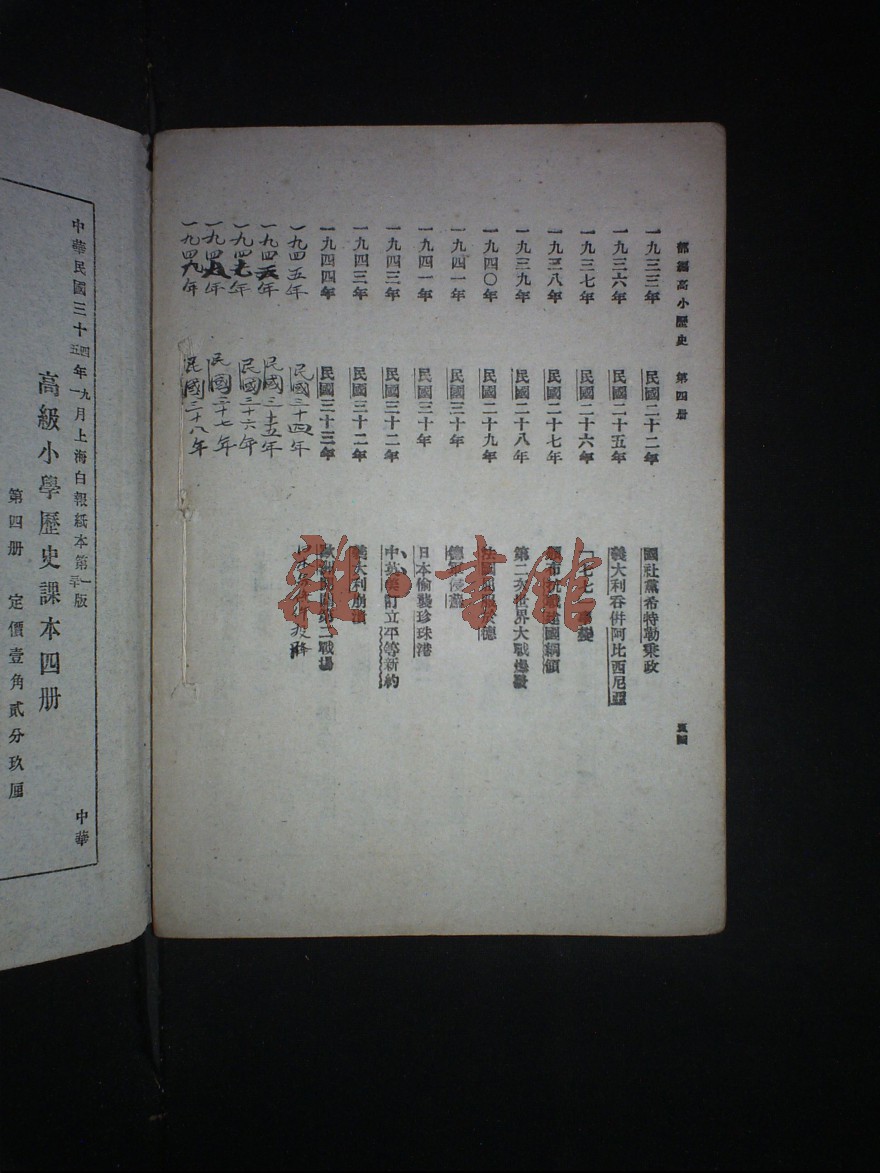 部編高小歷史 第四册
一九三三年 民國二十二年 國社黨希特勒秉政
一九三六年 民國二十五年 義大利吞併阿比西尼亞
一九三七年 民國二十六年 「七七」事變
一九三八年 民國二十七年 頒布抗戰建國綱領
一九三九年 民國二十八年 第二次世界大戰爆發
一九四〇年 民國二十九年 法國屈服於德
一九四一年 民國三十年 德軍侵蘇
一九四一年 民國三十年 日本偷襲珍珠港
一九四三年 民國三十二年 中英美訂立平等新約
一九四三年 民國三十二年 義大利崩潰
一九四四年 民國三十三年 歐洲開闢第二戰場
一九四五年 民國三十四年 投降
一九四六年 民國三十五年
一九四七年 民國三十六年
一九四八年 民國三十七年
一九四九年 民國三十八年
頁四
雜·書館
中華民國三十四年九月上海白報紙本第一版
高級小學歷史課本四册
第四册 定價壹角貳分玖厘
中華